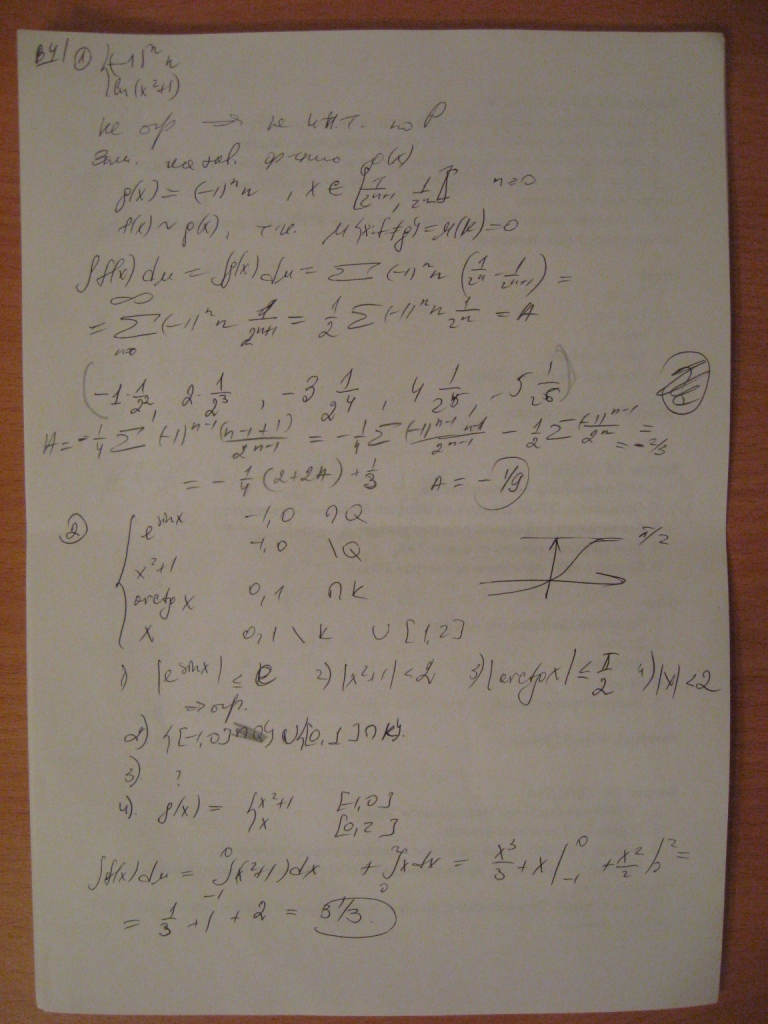 В4| ① { (-1)ⁿ n
ln(x²+1)
не огр → не инт. по Р
Зам. на экв. функцию g(x)
g(x) = (-1)ⁿ n , x ∈ [1/2ⁿ⁺¹, 1/2ⁿ] n ≥ 0
f(x) ~ g(x), т.к. μ{x: f≠g} = μ(K) = 0
∫f(x) dμ = ∫g(x) dμ = ∑ (-1)ⁿ n (1/2ⁿ - 1/2ⁿ⁺¹) =
= ∑_{n=0}^{∞} (-1)ⁿ n 1/2ⁿ⁺¹ = 1/2 ∑ (-1)ⁿ n 1/2ⁿ = A
(-1·1/2², 2·1/2³, -3 1/2⁴, 4 1/2⁵, -5 1/2⁶)
A = -1/4 ∑ (-1)ⁿ⁻¹ (n-1+1)/2ⁿ⁻¹ = -1/4 ∑ (-1)ⁿ⁻¹ n-1/2ⁿ⁻¹ - 1/2 ∑ (-1)ⁿ⁻¹/2ⁿ = = -2/3
= -1/4 (2+2A) + 1/3 A = -1/9
② { e^{sin x} -1,0 ∩Q
x²+1 -1,0 \Q
arctg x 0,1 ∩K
x 0,1 \ K ∪ [1,2]
π/2
1) |e^{sin x}| ≤ e 2) |x²+1| < 2 3) |arctg x| ≤ π/2 4) |x| < 2
⇒ огр.
2) {[-1,0] ∩Q} ∪ {[0,1] ∩ K}.
3) ?
4). g(x) = { x²+1 [-1,0]
x [0,2]
∫f(x) dμ = ∫_{-1}^{0} (x²+1) dx + ∫_{0}^{2} x dx = x³/3 + x |_{-1}^{0} + x²/2 |_{0}^{2} =
= 1/3 + 1 + 2 = 3 1/3.